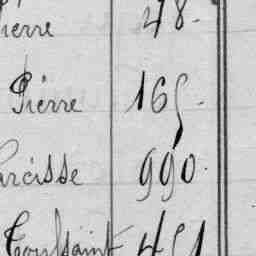 Pierre 48.
Pierre 165.
arcisse 990.
Toussaint 451